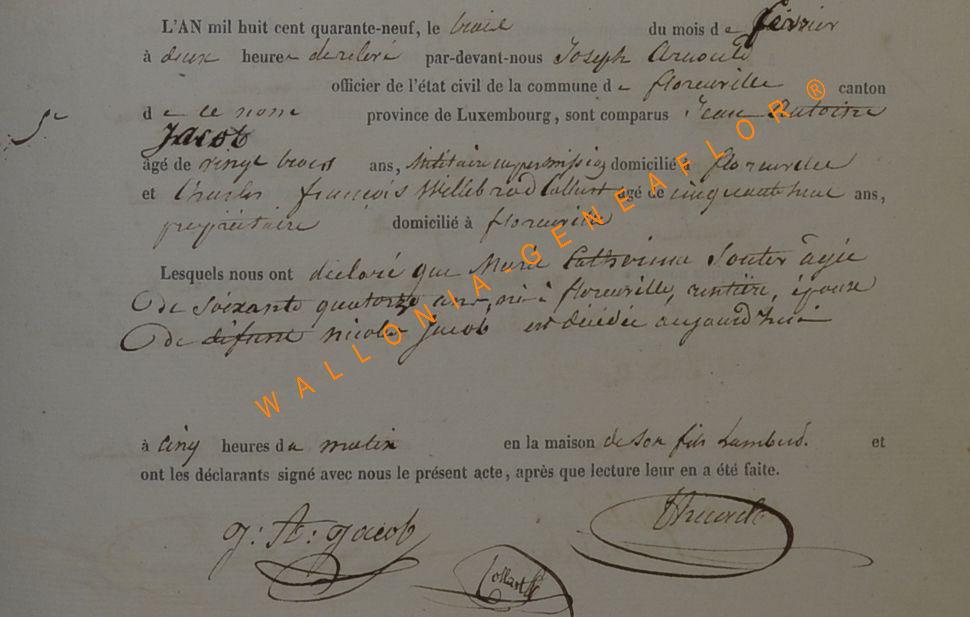 L'AN mil huit cent quarante-neuf, le trois du mois de février
à deux heures de relevé par-devant-nous Joseph Arnould
officier de l'état civil de la commune de florenville canton
5e
de ce nom province de Luxembourg, sont comparus Jean Antoine
Jacob
âgé de vingt trois ans, militaire en permission domicilié à florenville
et Charles françois Willebrod Collart âgé de cinquante huit ans,
propriétaire domicilié à florenville
Lesquels nous ont déclaré que Marie Catherine Souter âgée
de soixante quatorze ans, née à florenville, rentière, épouse
de défunt nicolas Jacob est décédée aujourd'hui
à cinq heures du matin en la maison de son fils Lambert. et
ont les déclarants signé avec nous le présent acte, après que lecture leur en a été faite.
j: A: jacob
Collart
WALLONIA-GENEAFLOR®